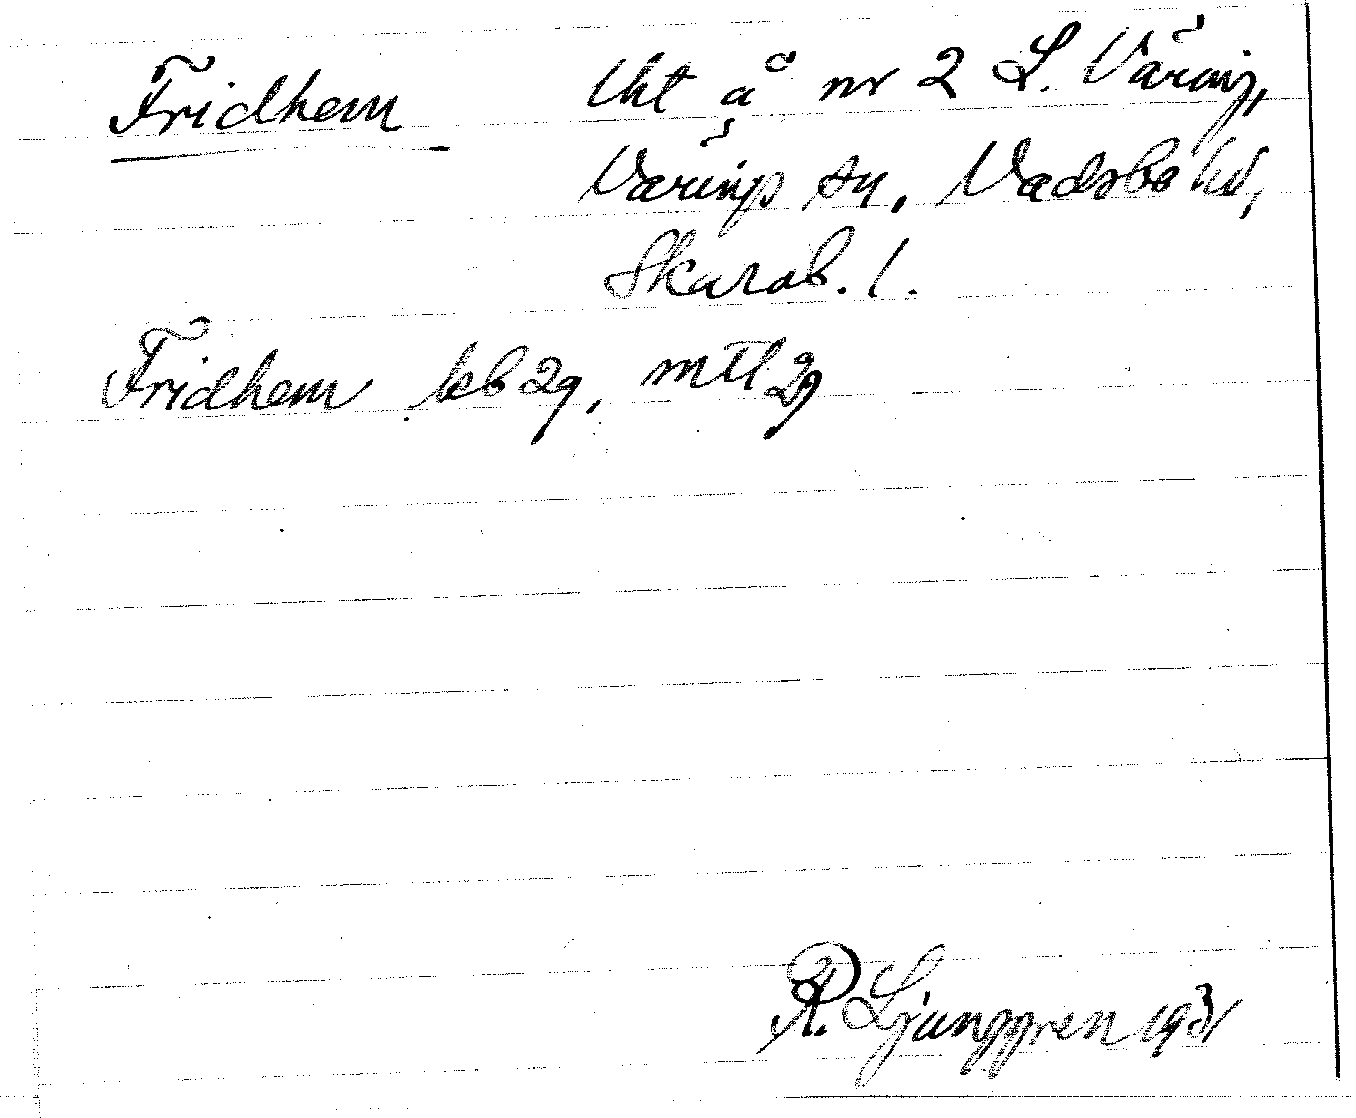 Fridhem lht å nr 2 L. Väring,
Värings sn, Vadsbo hd,
Skarab. l.
Fridhem kb 29, mtl 29
R. Ljunggren 1931